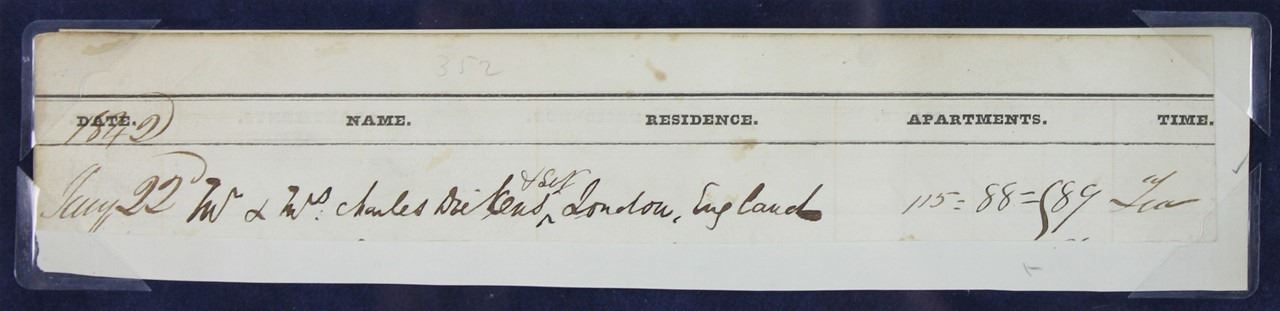 352
DATE. NAME. RESIDENCE. APARTMENTS. TIME.
1842
Jany 22 Mr & Mrs. Charles Dickens, & Sert London, England 115 = 88 = 89 Tea